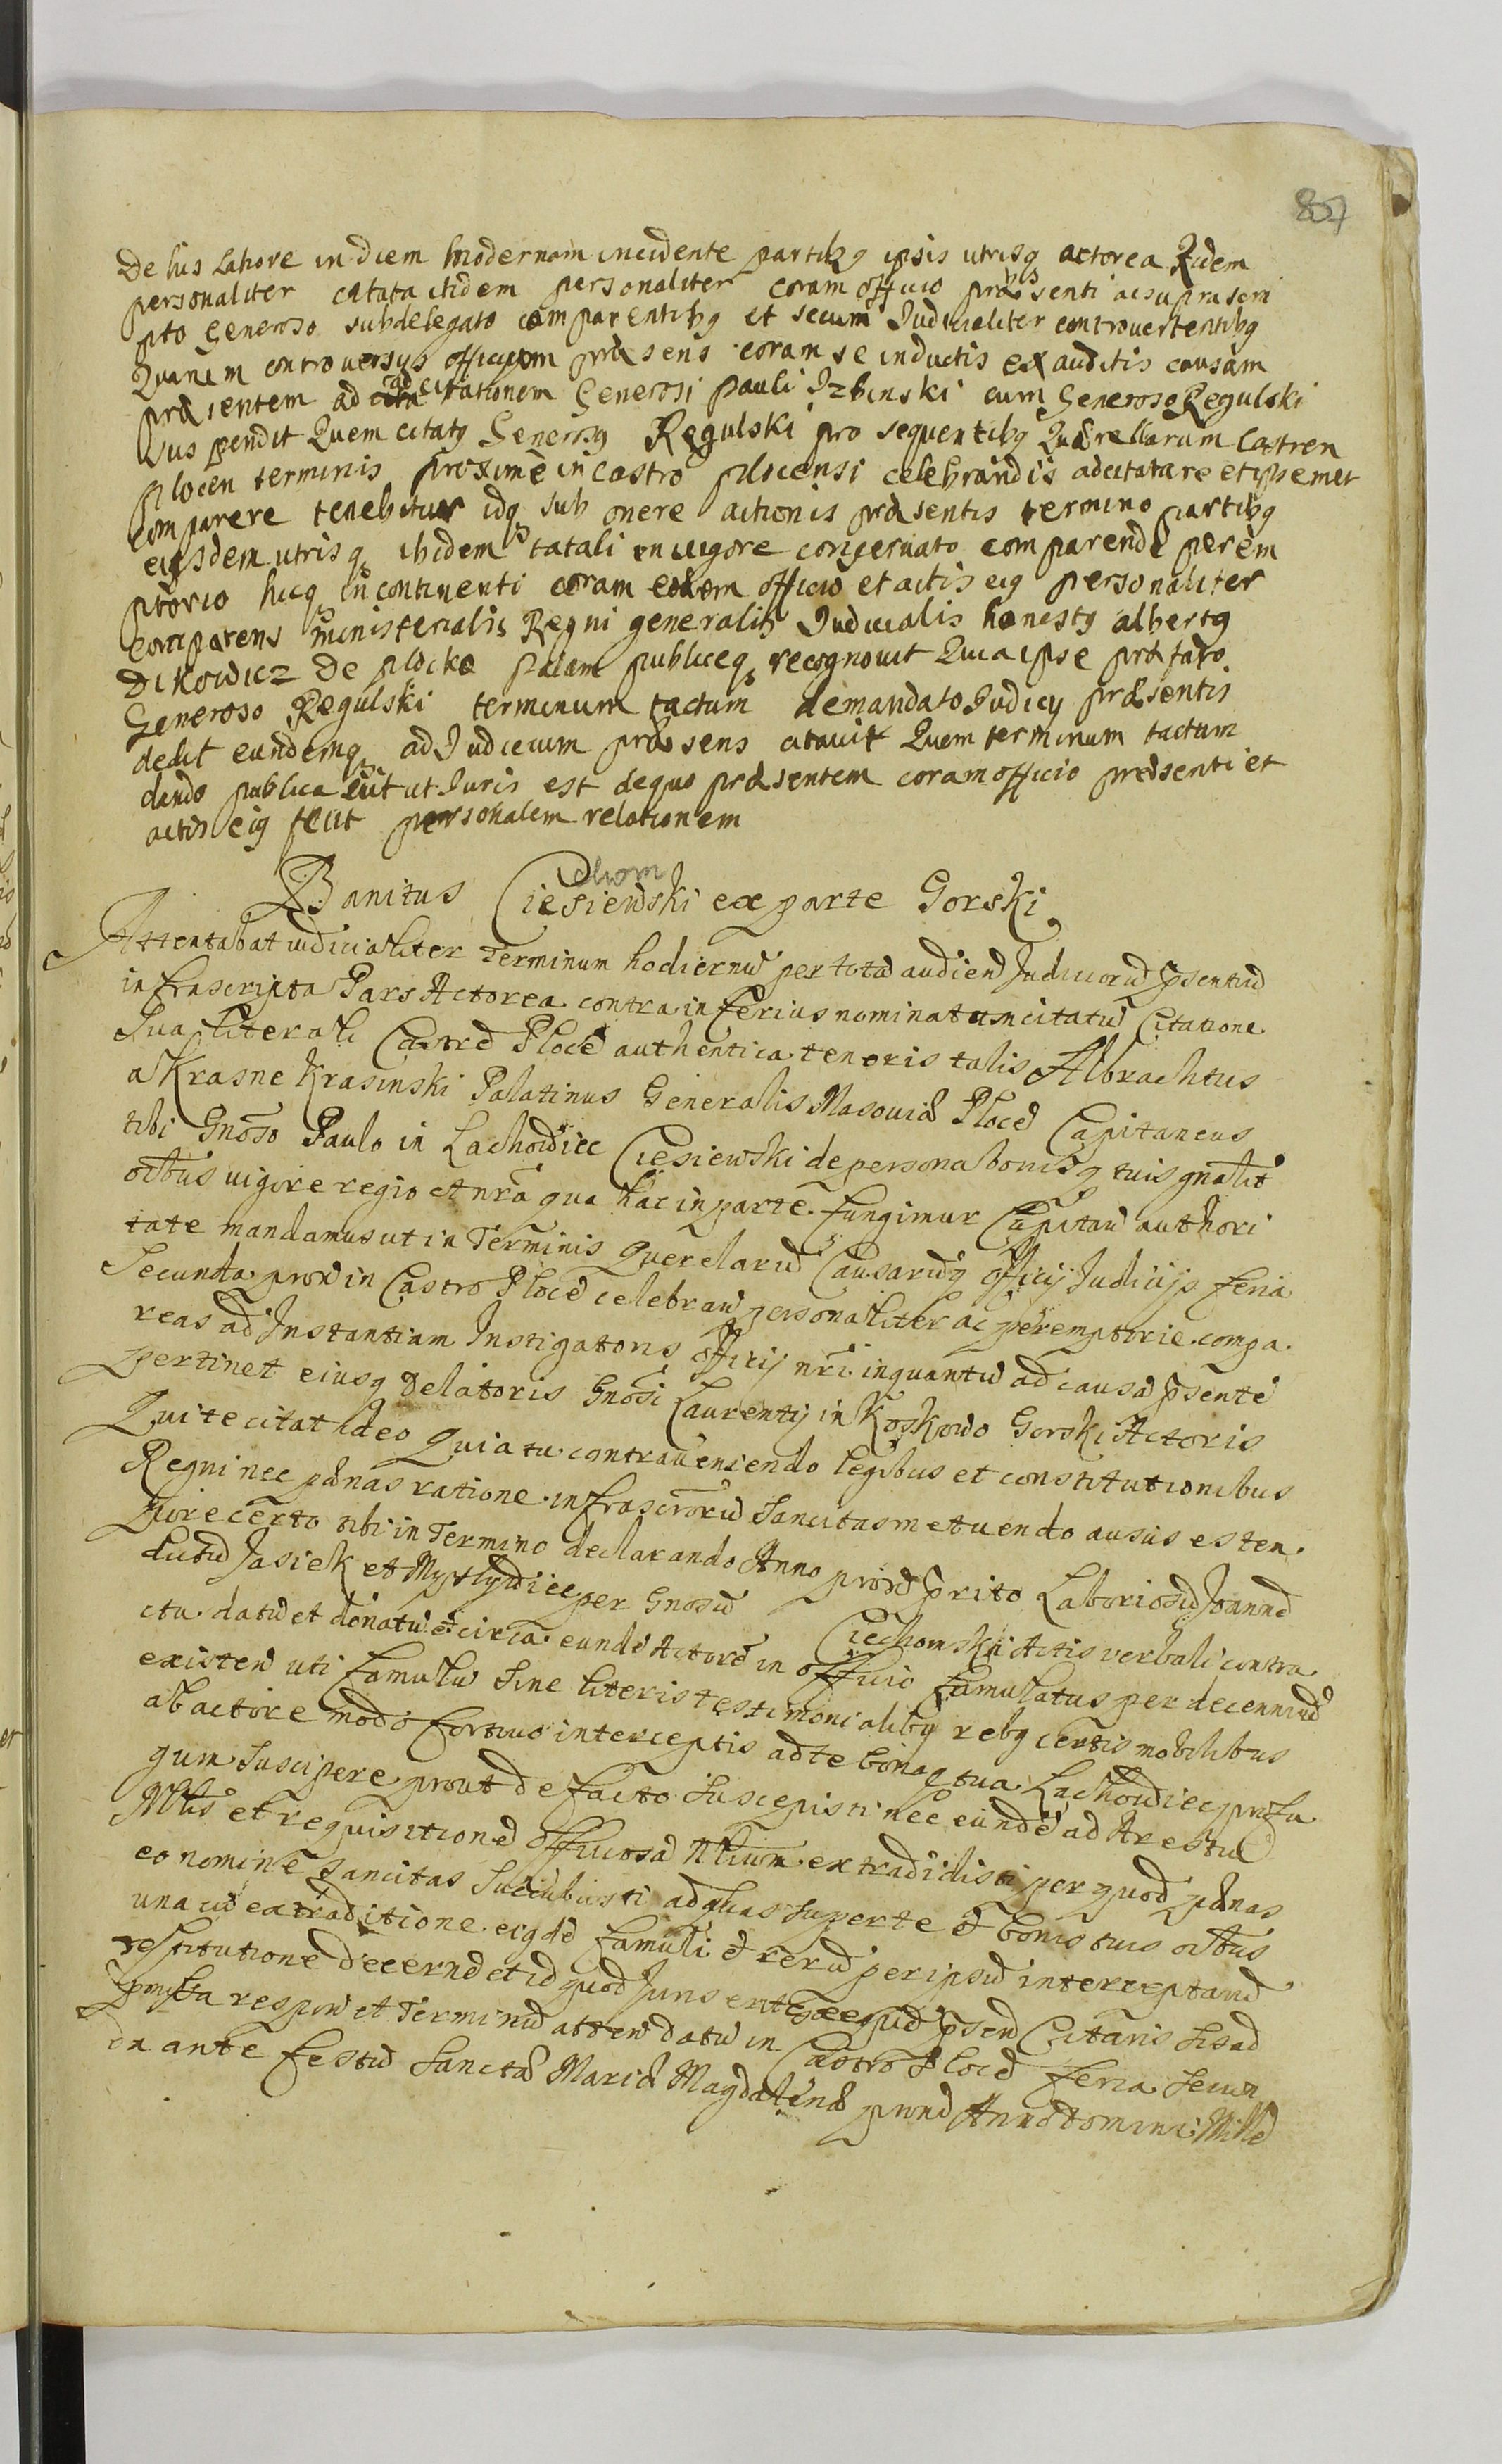 857
De his Latiore in diem hodiernam incidente partibq ipsis utrisq actorea Quidem
personaliter citata itidem personaliter coram officio præsenti ac suprascri
pto Generoso subdelegato comparentibq et secum Judicialiter controvertentibq
Quarum controversys officium præsens coram se inductis exauditis causam
præsentem ad adcitationem Generosi Pauli Izbinski cum Generoso Regulski
suspendit Quem citatq Generosq Regulski pro sequentibq Quærellarum Castren
plocen terminis proxime in castro plocensi celebrandis adcitatare et ipsemet
comparere tenebitur idq sub onere actionis præsentis termino partibq
eisdem utrisq ibidem statali in vigore conservato comparendi perem
ptorio hicq in continenti coram eodem officio et actis eiq personaliter
comparens ministerialis Regni generalis Judicialis honestq albertq
Dikowicz de plocko palam publiceq recognovit Quia ipse præfato
Generoso Regulski terminum tactum de mandato Judicy præsentis
dedit eundemq ad Judicium præsens citavit Quem terminum tactum
dando publicavit ut Juris est de quo præsentem coram officio præsenti et
actis eiq fecit personalem relationem
Banitus Ciesiewski ex parte Gorski
Attentabat iudicialiter Terminum hodiernū per totā audien Judiciorū psentiū
infrascripta Pars Actorea contra inferius nominatum citatū Citatione
Sua literali Castrē Plocē authentica tenoris talis Albrachtus
a Krasne Krasinski Palatinus Generalis Masoviæ Plocē Capitaneus
tibi Gnoso Paulo in Lachowiec Ciesiewski de persona bonisq tuis gnalit
oibus vigore regio et nra qua hac in parte fungimur Capitan authori
tate mandamus ut in Terminis Querelarū Causarūq officij Judicijs feria
Secunda prox in Castro Plocē celebran personaliter ac peremptorie compa
reas ad Instantiam Instigatoris officij nri inquantū ad causā psentē
pertinet eiusq Delatoris Gnosi Laurentij in Koskowo Gorski Actoris
Qui te citat ideo Quia tu contraveniendo legibus et constitutionibus
Regni nec pænas ratione infrascriptorū Sancitas metuendo ausus es ten
pore certo tibi in Termino declarando Anno prox prito Laboriosū Joannē
dictū Jasiek et Myslywiec per Gnosū Ciechomski Actis verbali contra
ctu datū et donatū et circa eundē Actorē in officio famulatus per decenniū
existen uti famulū Sine literis testimonialibq rebq certis mobilibus
ab actore modo fortivo interceptis ad te bonaq tua Lachowiec profu
gum suscipere prout de facto suscepisti nec eundē ad Arestū
Mlis et requisitionē officiosā Alium extradidisti per quod pænas
eo nomine Sancitas Succubuisti ad quas super te et bonis tuis oibus
una cū extraditione eiqdē famuli et rerū per ipsū interceptarū
restitutione decernē et id quod Juris erit exequē psen Citaris sis ad
pmissa respon et Terminū atten datū in Castro Plocē feria Secun
da ante festū Sanctæ Mariæ Magdalenæ prox Anno domini Mille